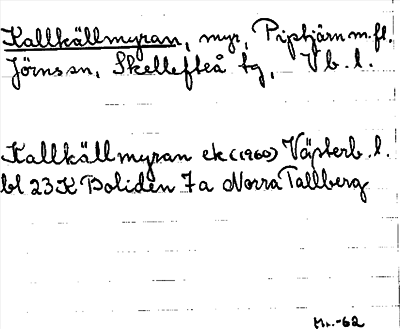 Kallkällmyran, myr, Piptjärn m.fl.
Jörns sn, Skellefteå tg, Vb. l.
Kallkällmyran ek (1960) Västerb. l.
bl 23K Boliden 7a Norra Tallberg
-62